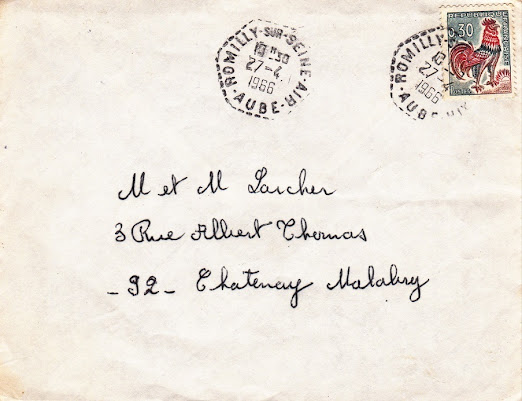 ROMILLY-SUR-SEINE-AIR
10H30
27-4
1966
AUBE
ROMILLY-
10
27-4
1966
AUBE-AIR
REPUBLIQUE
0,30
M et M Larcher
3 Rue Albert Thomas
-92- Chatenay Malabry